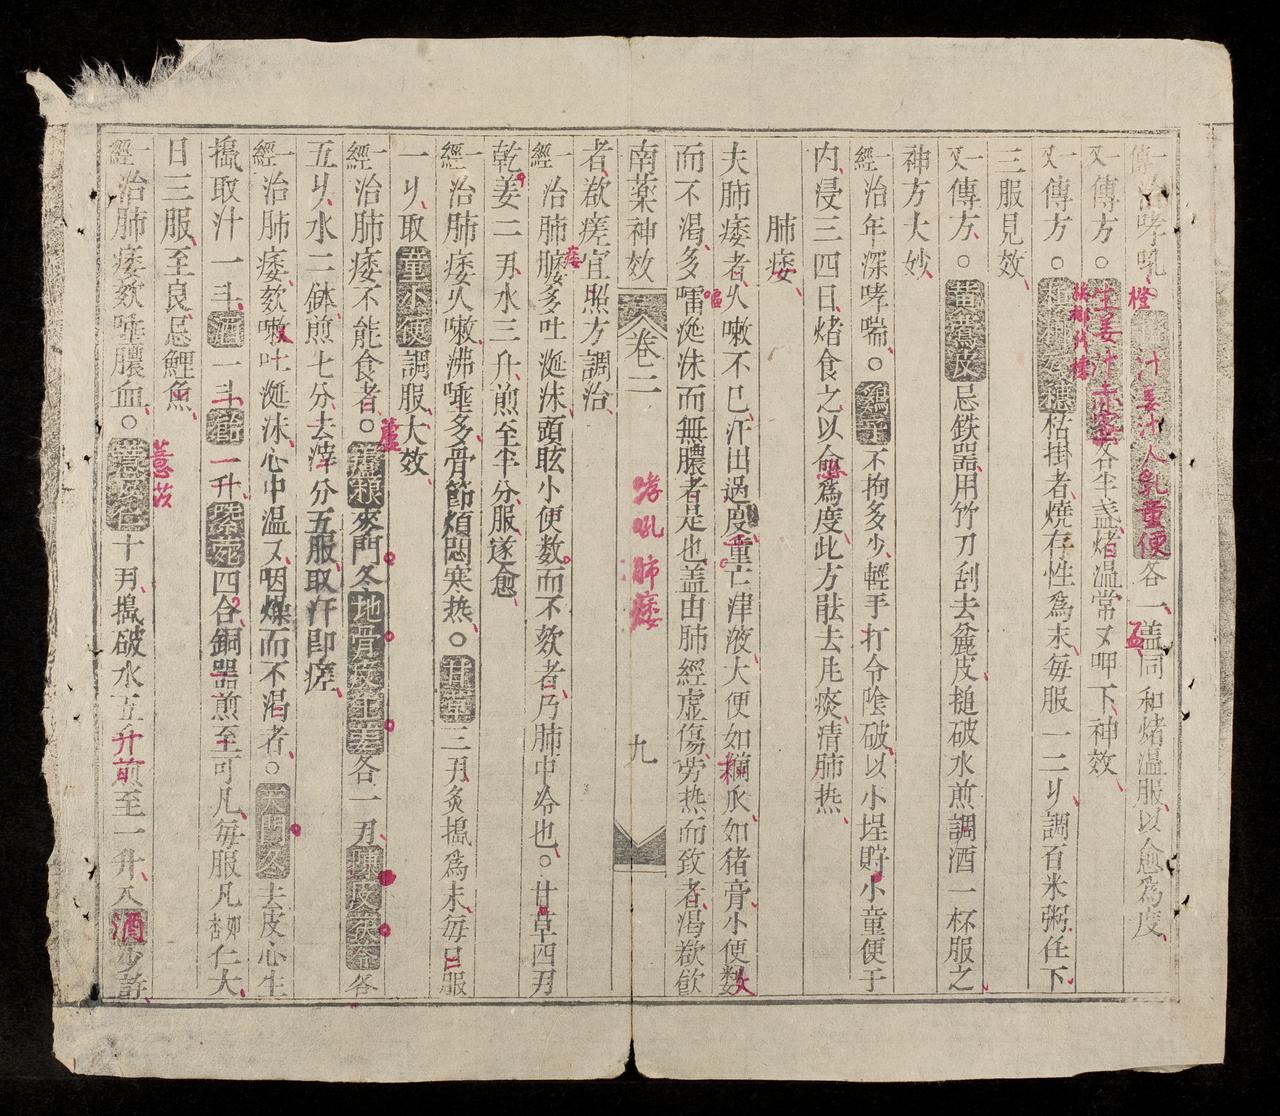 治哮吼 汁姜汁人乳童便各一盖同和烤温服以愈爲度
一又傳方○生姜汁赤蜜各半盏烤温常又呷下神效
一又傳方○穗枯掛者燒存性爲末每服一二刂調百米粥任下
三服見效
一又傳方○黃鶯皮忌鉄器用竹刀刮去麁皮搥破水煎調酒一杯服之
神方大妙
一經治年深哮喘○鷄子不拘多少輕手打令陰破以小埕貯小童便于
内浸三四日烤食之以愈爲度此方能去風痰清肺热
肺痿
夫肺痿者久嗽不已汗出過度童亡津液大便如爛瓜如猪膏小便数
而不渴多嚅涎沫而無膿者是也盖由肺經虚傷劳热而致者渴欲飲
南藥神效 卷二 九
哮吼肺痿
者欲瘥宜照方調治
一經治肺膿多吐涎沫頭眩小便数而不欬者乃肺中冷也○甘草四刃
痿
乾姜二刃水三升煎至半分服遂愈
一經治肺痿久嗽沸唾多骨節煩悶寒热○甘草三刃炙搗爲末每日服
一刂取童小便調服大效
一經治肺痿不能食者○蘆根麥門冬地骨皮生姜各一刃陳皮茯苓各
蘆
五刂水二鉢煎七分去滓分五服取汗即瘥
一經治肺痿欬嗽吐涎沫心中温又咽燥而不渴者○天門冬去皮心生
搗取汁一斗酒一斗飴一升紫菀四合銅器煎至可凡每服凡如杏仁大
日三服至良忌鯉魚
薏苡
一經治肺痿欬唾膿血○薏苡仁十刃搗破水五升煎至一升入酒少許